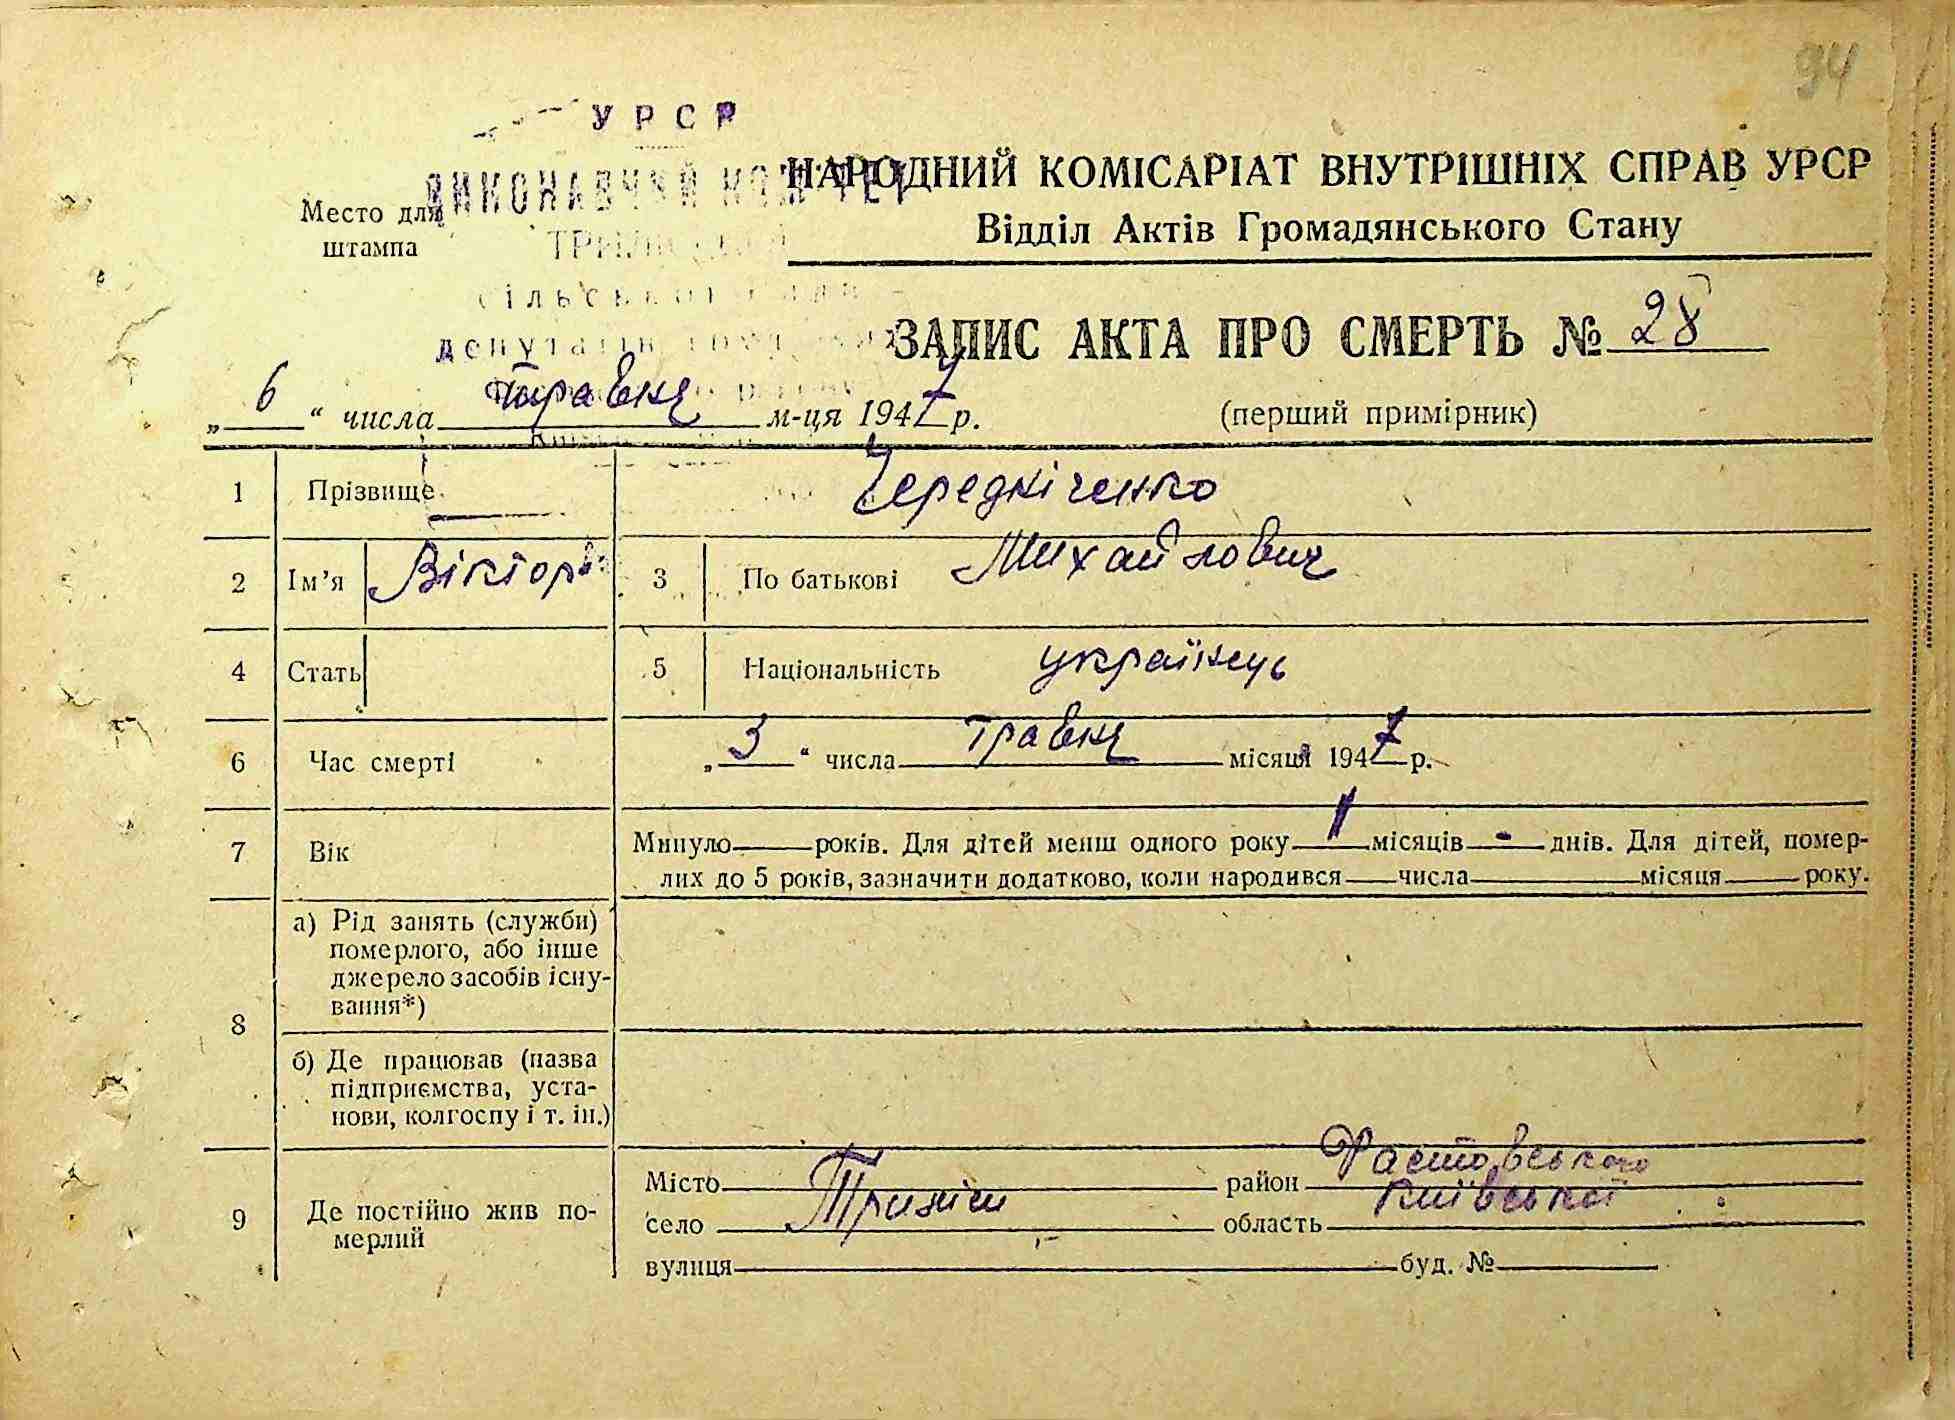 94
У Р С Р
ВИКОНАВЧИЙ КОМІТЕТ
НАРОДНИЙ КОМІСАРІАТ ВНУТРІШНІХ СПРАВ УРСР
Место для
штампа
Відділ Актів Громадянського Стану
сільської
депутатів
ЗАПИС АКТА ПРО СМЕРТЬ № 28
„ 6 “ числа травня м-ця 1947 р.
(перший примірник)
1 Прізвище Чередніченко
2 Ім’я Віктор 3 По батькові Михайлович
4 Стать 5 Національність українець
6 Час смерті „ 3 “ числа травня місяця 1947 р.
7 Вік Минуло років. Для дітей менш одного року 11 місяців - днів. Для дітей, помер-
лих до 5 років, зазначити додатково, коли народився числа місяця року.
8 а) Рід занять (служби)
померлого, або інше
джерело засобів існу-
вання*)
б) Де працював (назва
підприємства, уста-
нови, колгоспу і т. ін.)
9 Де постійно жив по-
мерлий
Місто район Фастовського
село Триліси область Київської
вулиця буд. №